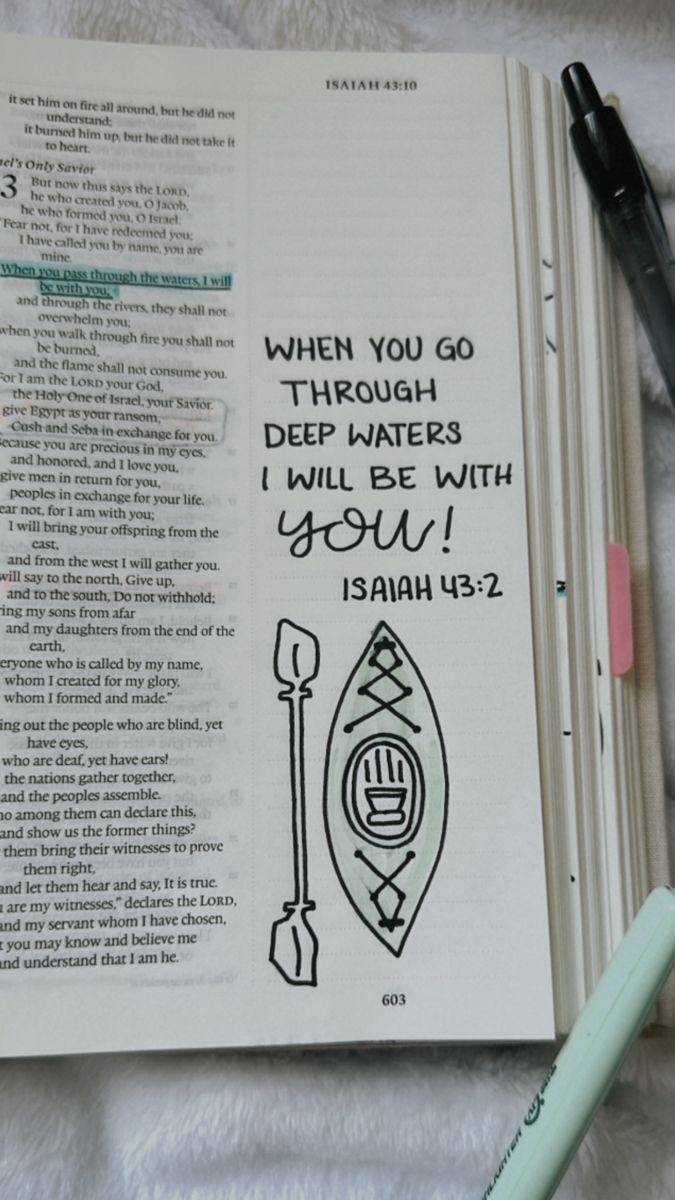 ISAIAH 43:10
it set him on fire all around, but he did not
understand;
it burned him up, but he did not take it
to heart.
ael's Only Savior
3 But now thus says the LORD,
he who created you, O Jacob,
he who formed you, O Israel:
"Fear not, for I have redeemed you;
I have called you by name, you are
mine.
When you pass through the waters, I will
be with you;
and through the rivers, they shall not
overwhelm you;
when you walk through fire you shall not
be burned,
and the flame shall not consume you.
For I am the LORD your God,
the Holy One of Israel, your Savior.
give Egypt as your ransom,
Cush and Seba in exchange for you.
Because you are precious in my eyes,
and honored, and I love you,
give men in return for you,
peoples in exchange for your life.
ear not, for I am with you;
I will bring your offspring from the
east,
and from the west I will gather you.
will say to the north, Give up,
and to the south, Do not withhold;
ring my sons from afar
and my daughters from the end of the
earth,
eryone who is called by my name,
whom I created for my glory,
whom I formed and made."
ing out the people who are blind, yet
have eyes,
who are deaf, yet have ears!
the nations gather together,
and the peoples assemble.
ho among them can declare this,
and show us the former things?
them bring their witnesses to prove
them right,
and let them hear and say, It is true.
u are my witnesses," declares the LORD,
and my servant whom I have chosen,
t you may know and believe me
and understand that I am he.
WHEN YOU GO
THROUGH
DEEP WATERS
I WILL BE WITH
YOU!
ISAIAH 43:2
603